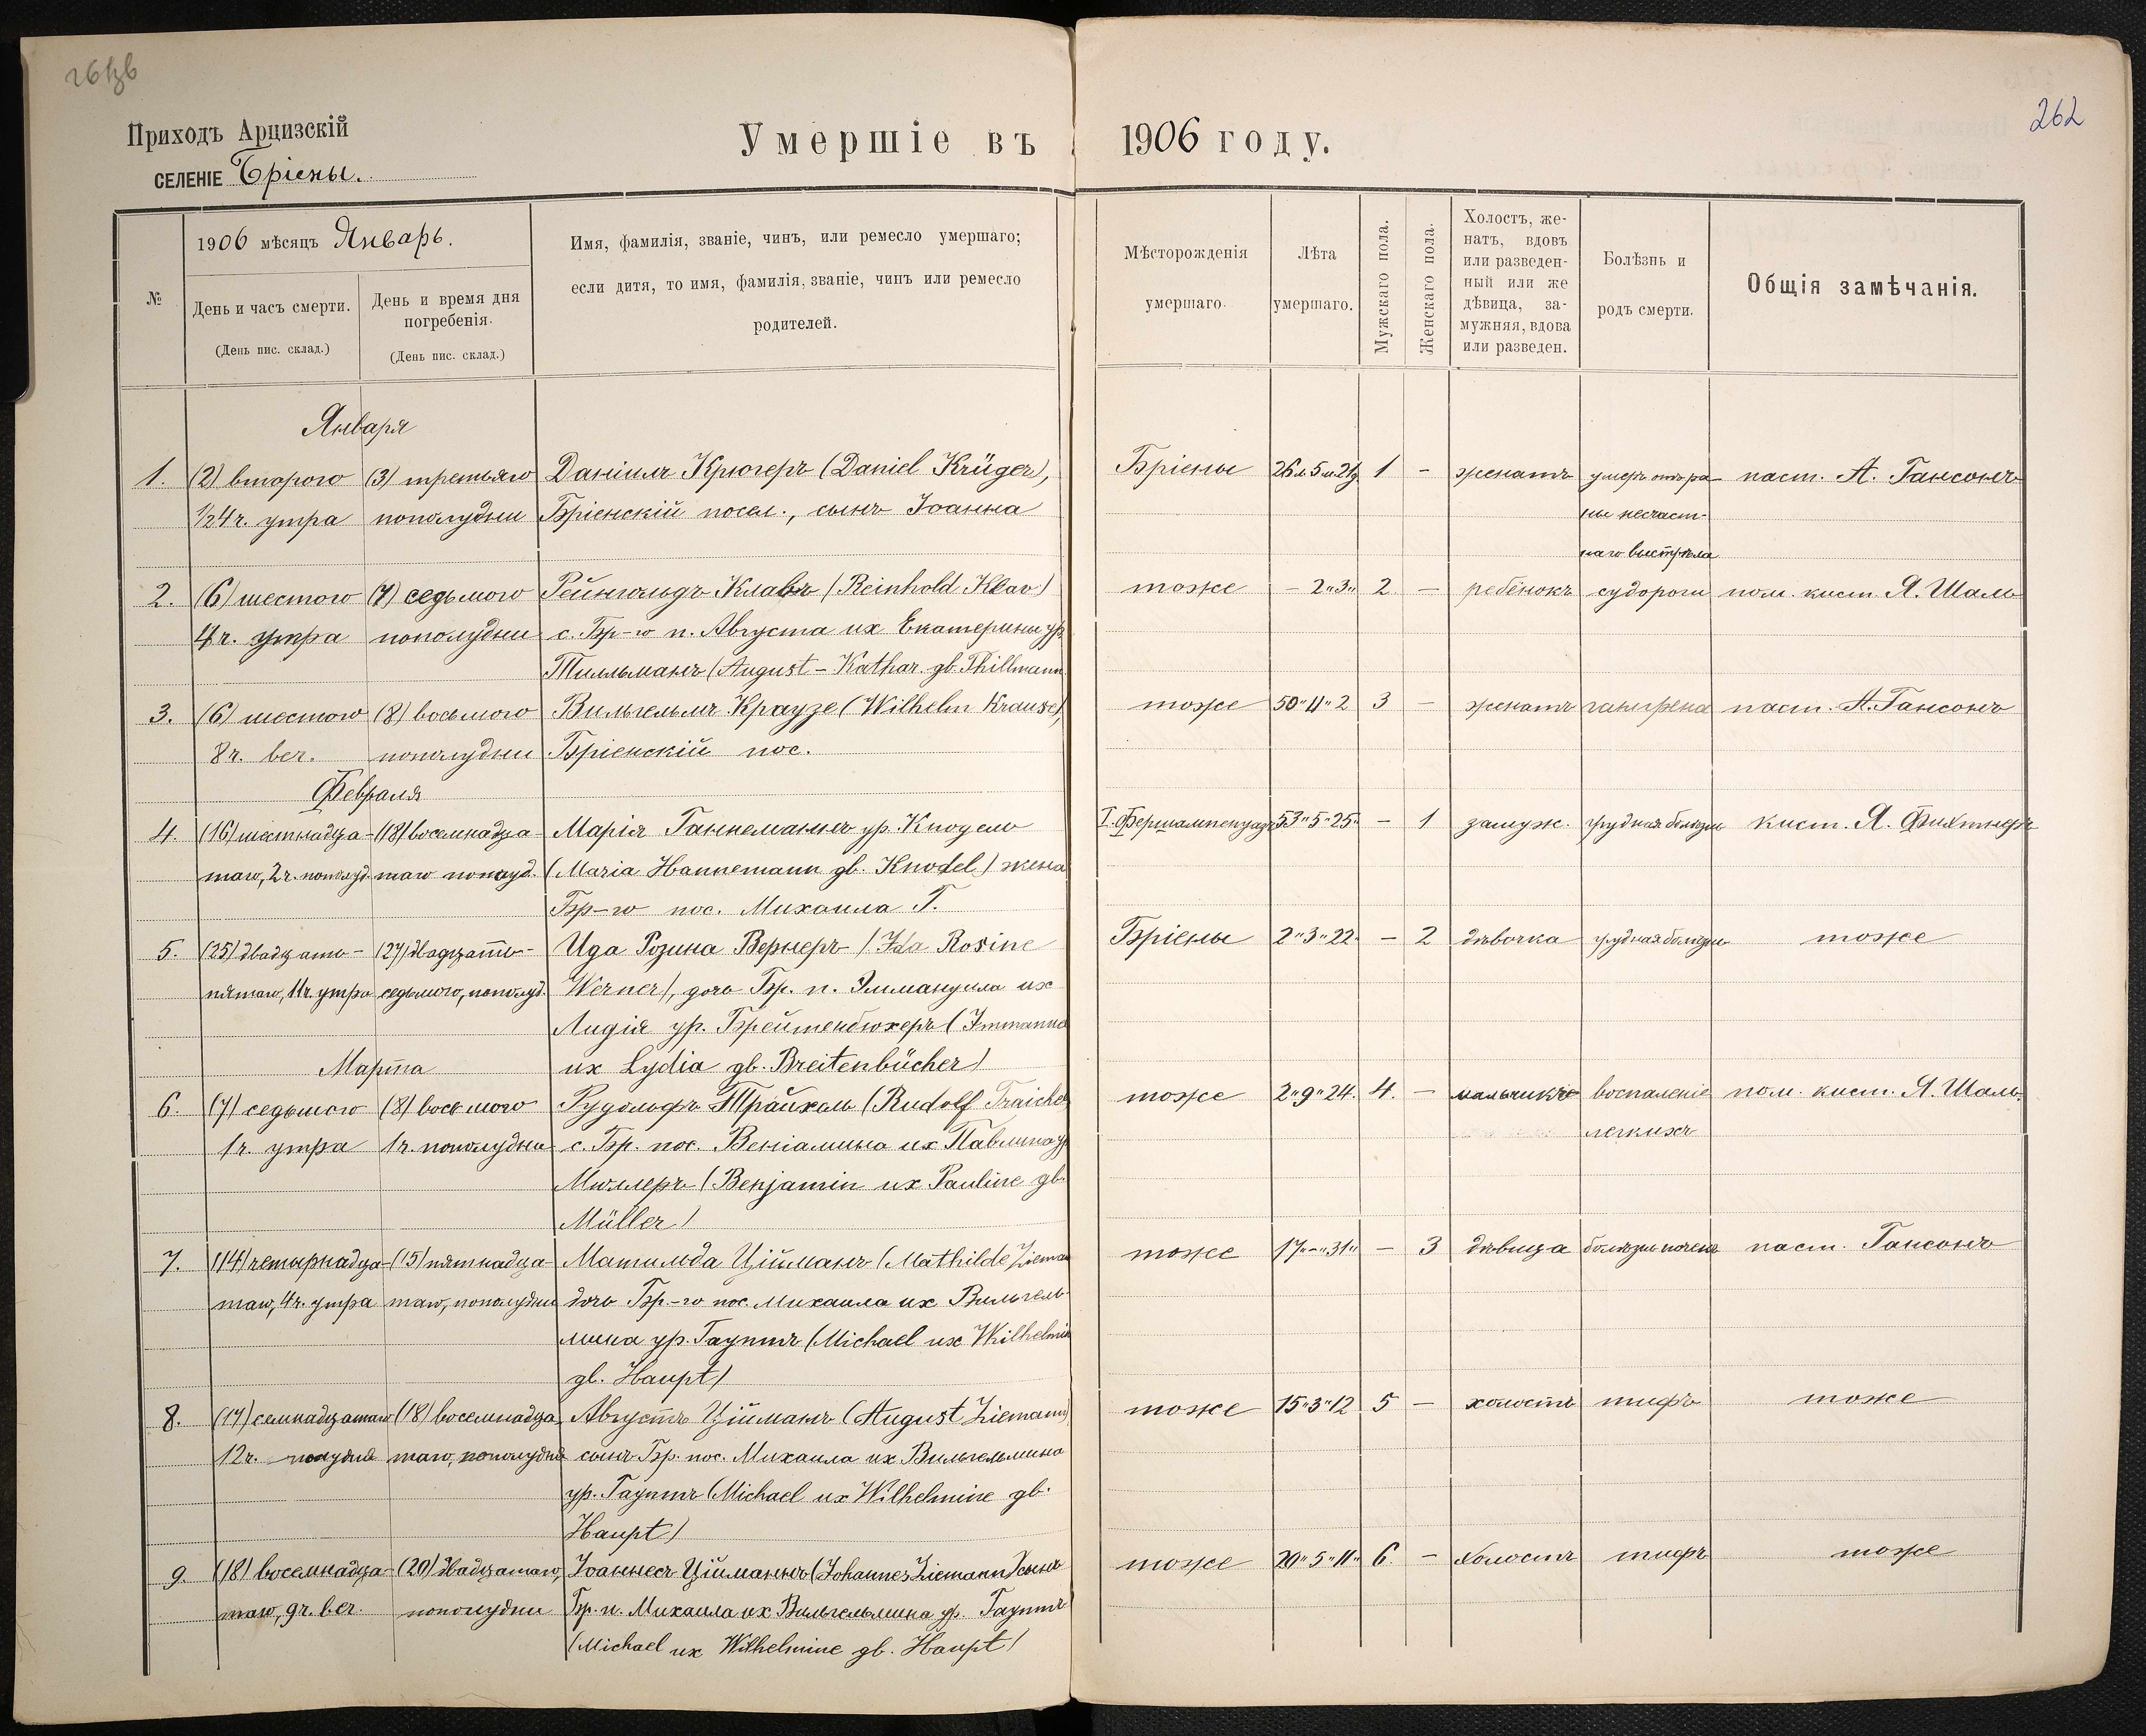 262
Приходъ Арцизскій
СЕЛЕНІЕ Бріены.
Умершіе въ 1906 году.
№
1906 мѣсяцъ Январь.
День и часъ смерти.
(День пис. склад.)
День и время дня
погребенія.
(День пис. склад.)
Имя, фамилія, званіе, чинъ, или ремесло умершаго;
если дитя, то имя, фамилія, званіе, чинъ или ремесло
родителей.
Мѣсторожденія
умершаго.
Лѣта
умершаго.
Мужскаго пола.
Женскаго пола.
Холостъ, же-
натъ, вдовъ
или разведен-
ный или же
дѣвица, за-
мужняя, вдова
или разведен.
Болѣзнь и
родъ смерти.
Общія замѣчанія.
Января
1. (2) второго (3) третьяго Даніилъ Крюгеръ (Daniel Krüger), Бріены 26 л. 5 м. 21 д. 1 – женатъ умеръ отъ ра- паст. А. Гансонъ
1/2 4 ч. утра пополудни Бріенскій посел., сынъ Іоанна ны несчаст-
наго выстрѣла
2. (6) шестого (7) седьмого Рейнгольдъ Клавъ (Reinhold Klav) тоже – 2 " 3 " 2 – ребёнокъ судороги пом. кист. Я. Шаль
4 ч. утра пополудни с. Бр-го п. Августа их Екатерины ур.
Тилльманъ (August – Kathar. gb. Thillmann
3. (6) шестого (8) восьмого Вильгельмъ Краузе (Wilhelm Krause), тоже 50 " 11 " 2 3 – женатъ гангрена паст. А. Гансонъ
8 ч. веч. пополудни Бріенскій пос.
Февраля
4. (16) шестнадца- (18) восемнадца- Марія Ганнеманнъ ур. Кнодель I. Фершампенуазъ 53 " 5 " 25 " – 1 замуж. грудная болѣзнь кист. Я. Фихтнеръ
таго, 2 ч. пополуд. таго пополуд. (Maria Hannemann gb. Knodel) жена
Бр-го пос. Михаила Г.
5. (25) двадцать- (27) двадцать- Ида Розина Вернеръ (Ida Rosine Бріены 2 " 3 " 22 " – 2 дѣвочка грудная болѣзнь тоже
пятаго, 11 ч. утра седьмого, пополуд. Werner), дочь Бр. п. Эммануила их
Лидія ур. Брейтенбюхеръ (Immanuel
их Lydia gb. Breitenbücher)
Марта
6. (7) седьмого (8) восьмого Рудольфъ Трайхель (Rudolf Traichel тоже 2 " 9 " 24. 4. – мальчикъ воспаленіе пом. кист. Я. Шаль.
1 ч. утра 1 ч. пополудни с. Бр. пос. Веніамина их Павлина ур. легкихъ
Мюллеръ (Benjamin их Pauline gb.
Müller)
7. (14) четырнадца- (15) пятнадца- Матильда Ційманъ (Mathilde Zieman тоже 17 " – " 31 " – 3 дѣвица болѣзнь почекъ паст. Гансонъ
таго, 4 ч. утра таго, пополудни дочь Бр.-го пос. Михаила их Вильгель-
мина ур. Гауптъ (Michael их Wilhelmin
gb. Haupt)
8. (17) семнадцатаго (18) восемнадца Августъ Ційманъ (August Ziemann) тоже 15 " 3 " 12 5 – холостъ тифъ тоже
12 ч. полудня таго, пополудня сынъ Бр. пос. Михаила их Вильгельмина
ур. Гауптъ (Michael их Wilhelmine gb.
Haupt)
9. (18) восемнадца- (20) двадцатаго, Іоаннесъ Ційманнъ (Johannes Ziemann) сынъ тоже 20 " 5 " 11 " 6. – холостъ тифъ тоже
таго, 9 ч. веч. пополудни Бр. п. Михаила их Вильгельмина ур. Гауптъ
(Michael их Wilhelmine gb. Haupt)